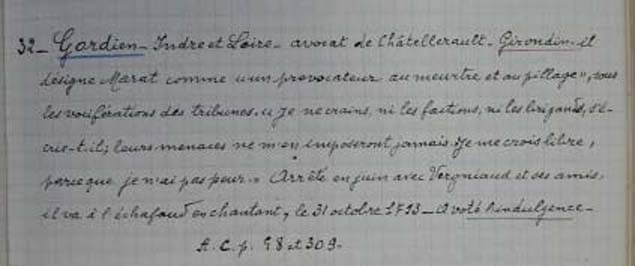 32_ Gardien_ Indre et Loire_ avocat de Châtellerault_ Girondin_ il
désigne Marat comme "un provocateur au meurtre et au pillage", sous
les vociférations des tribunes. "Je ne crains, ni les factions, ni les brigands, s'é-
crie-t-il; leurs menaces ne m'en imposeront jamais. Je me crois libre,
parce que je n'ai pas peur." Arrêté en juin avec Vergniaud et ses amis,
il va à l'échafaud en chantant, le 31 octobre 1793_ A voté l'indulgence_
A.C. p. 98 et 309_